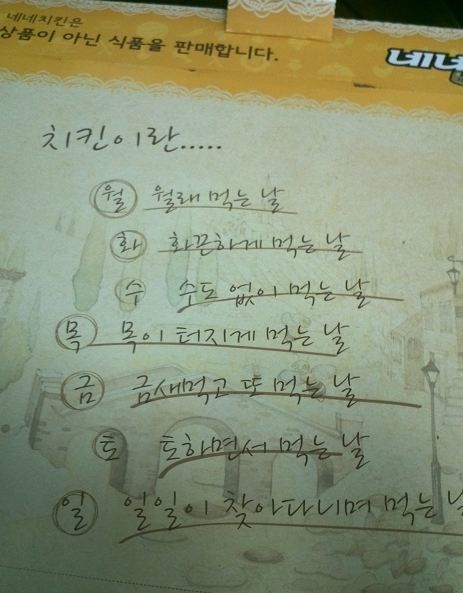 네네치킨은
상품이 아닌 식품을 판매합니다.
네네
치킨이란.....
월 월래 먹는 날
화 화끈하게 먹는 날
수 수도 없이 먹는 날
목 목이 터지게 먹는 날
금 금새먹고 또 먹는 날
토 토하면서 먹는 날
일 일일이 찾아다니며 먹는 날